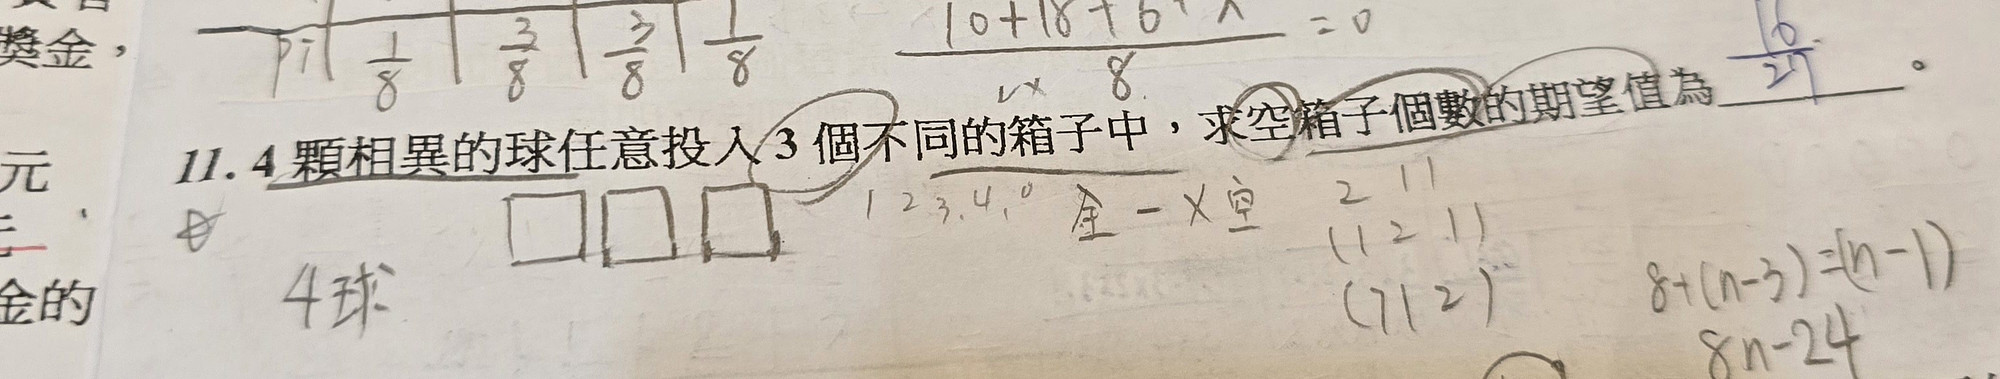 獎金，
Pi 1/8 3/8 3/8 1/8
10+18+6+x / 8 = 0
元
11. 4 顆相異的球任意投入 3 個不同的箱子中，求空箱子個數的期望值為 16/27 。
1 2 3. 4. 0 全 一 X 空
2 1 1
(1 2 1)
金的
4球
8+(n-3)=(n-1)
8n-24